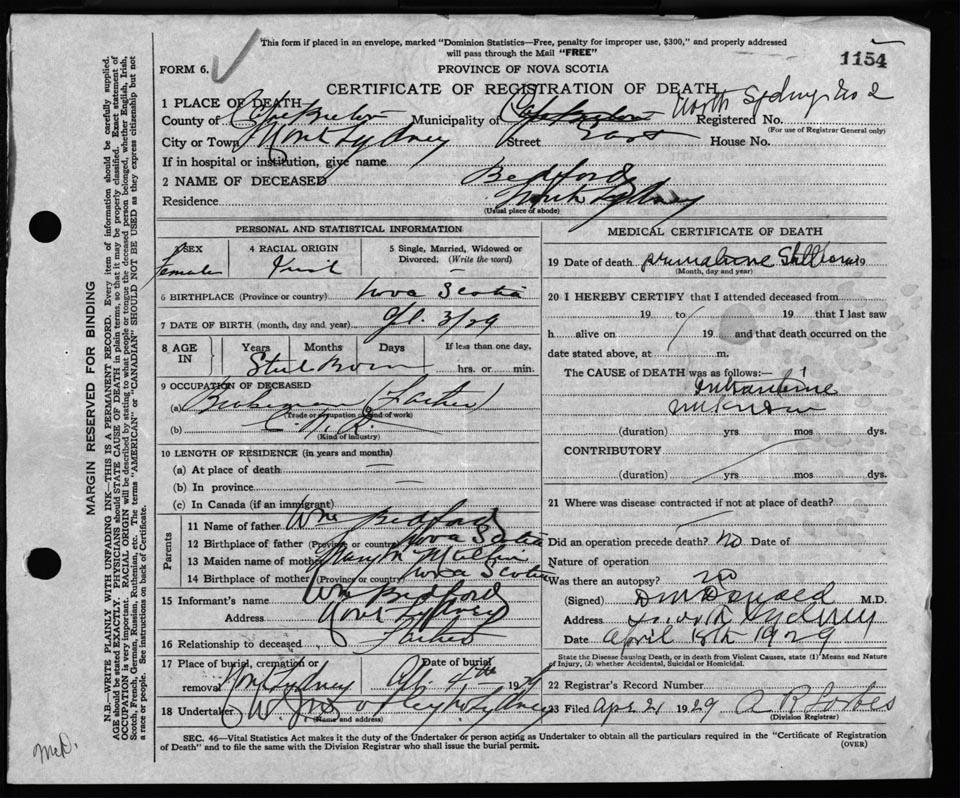 This form if placed in an envelope, marked "Dominion Statistics—Free, penalty for improper use, $300," and properly addressed
will pass through the Mail "FREE"
1154
FORM 6.
PROVINCE OF NOVA SCOTIA
CERTIFICATE OF REGISTRATION OF DEATH
North Sydney No 2
1 PLACE OF DEATH—
County of Cape Breton Municipality of Cape Breton Registered No.
(For use of Registrar General only)
City or Town North Sydney Street East House No.
If in hospital or institution, give name
2 NAME OF DECEASED Bedford
Residence North Sydney
(Usual place of abode)
PERSONAL AND STATISTICAL INFORMATION
3 SEX
Female
4 RACIAL ORIGIN
Irish
5 Single, Married, Widowed or Divorced. (Write the word)
—
6 BIRTHPLACE (Province or country) Nova Scotia
7 DATE OF BIRTH (month, day and year) Ap. 3/29
8 AGE IN
Years Months Days If less than one day,
Still Born hrs. or min.
9 OCCUPATION OF DECEASED
(a) Brakeman (Father)
(Trade or occupation or kind of work)
(b) C. N. R.
(Kind of industry)
10 LENGTH OF RESIDENCE (in years and months)
(a) At place of death —
(b) In province —
(c) In Canada (if an immigrant)
Parents
11 Name of father Wm Bedford
12 Birthplace of father (Province or country) Nova Scotia
13 Maiden name of mother Mary
14 Birthplace of mother (Province or country) Nova Scotia
15 Informant's name Wm Bedford
Address North Sydney
16 Relationship to deceased Father
17 Place of burial, cremation or removal North Sydney
Date of burial Ap. 4th 1929
18 Undertaker
(Name and address)
MEDICAL CERTIFICATE OF DEATH
19 Date of death Stillborn 19
(Month, day and year)
20 I HEREBY CERTIFY that I attended deceased from
19 to 19 that I last saw
h alive on 19 and that death occurred on the
date stated above, at m.
The CAUSE of DEATH was as follows:—
unknown
(duration) yrs mos dys.
CONTRIBUTORY
(duration) yrs mos dys.
21 Where was disease contracted if not at place of death?
Did an operation precede death? no Date of
Nature of operation
Was there an autopsy? no
(Signed) M.D.
Address North Sydney
Date April 18th 1929
State the Disease causing Death, or in death from Violent Causes, state (1) Means and Nature of Injury, (2) whether Accidental, Suicidal or Homicidal.
22 Registrar's Record Number
23 Filed Apr 21 1929
(Division Registrar)
SEC. 46—Vital Statistics Act makes it the duty of the Undertaker or person acting as Undertaker to obtain all the particulars required in the "Certificate of Registration
of Death" and to file the same with the Division Registrar who shall issue the burial permit.
(OVER)
MARGIN RESERVED FOR BINDING
N.B.—WRITE PLAINLY WITH UNFADING INK—THIS IS A PERMANENT RECORD. Every item of information should be carefully supplied.
AGE should be stated EXACTLY. PHYSICIANS should STATE CAUSE OF DEATH in plain terms, so that it may be properly classified. Exact statement of
OCCUPATION is very important. RACIAL ORIGIN will be described by stating to what people or tongue the deceased person belonged, whether English, Irish,
Scotch, French, German, Russian, Ruthenian, etc. The terms "AMERICAN" or "CANADIAN" SHOULD NOT BE USED as they express citizenship but not
a race or people. See instructions on back of Certificate.